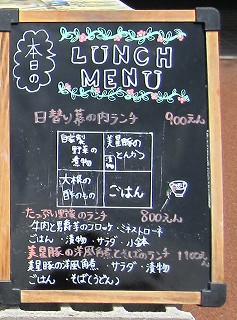 本日の
LUNCH
MENU
日替り幕の内ランチ 900えん
自家製
野菜の
煮物
美星豚の
とんかつ
漬物
大根の
酢のもの
ごはん
たっぷり野菜のランチ 800えん
牛肉と男爵芋のコロッケ・ミネストローネ
ごはん・漬物・サラダ・小鉢
美星豚の洋風角煮とそばのランチ 1100えん
美星豚の洋風角煮・サラダ・漬物
ごはん・そば(うどん)